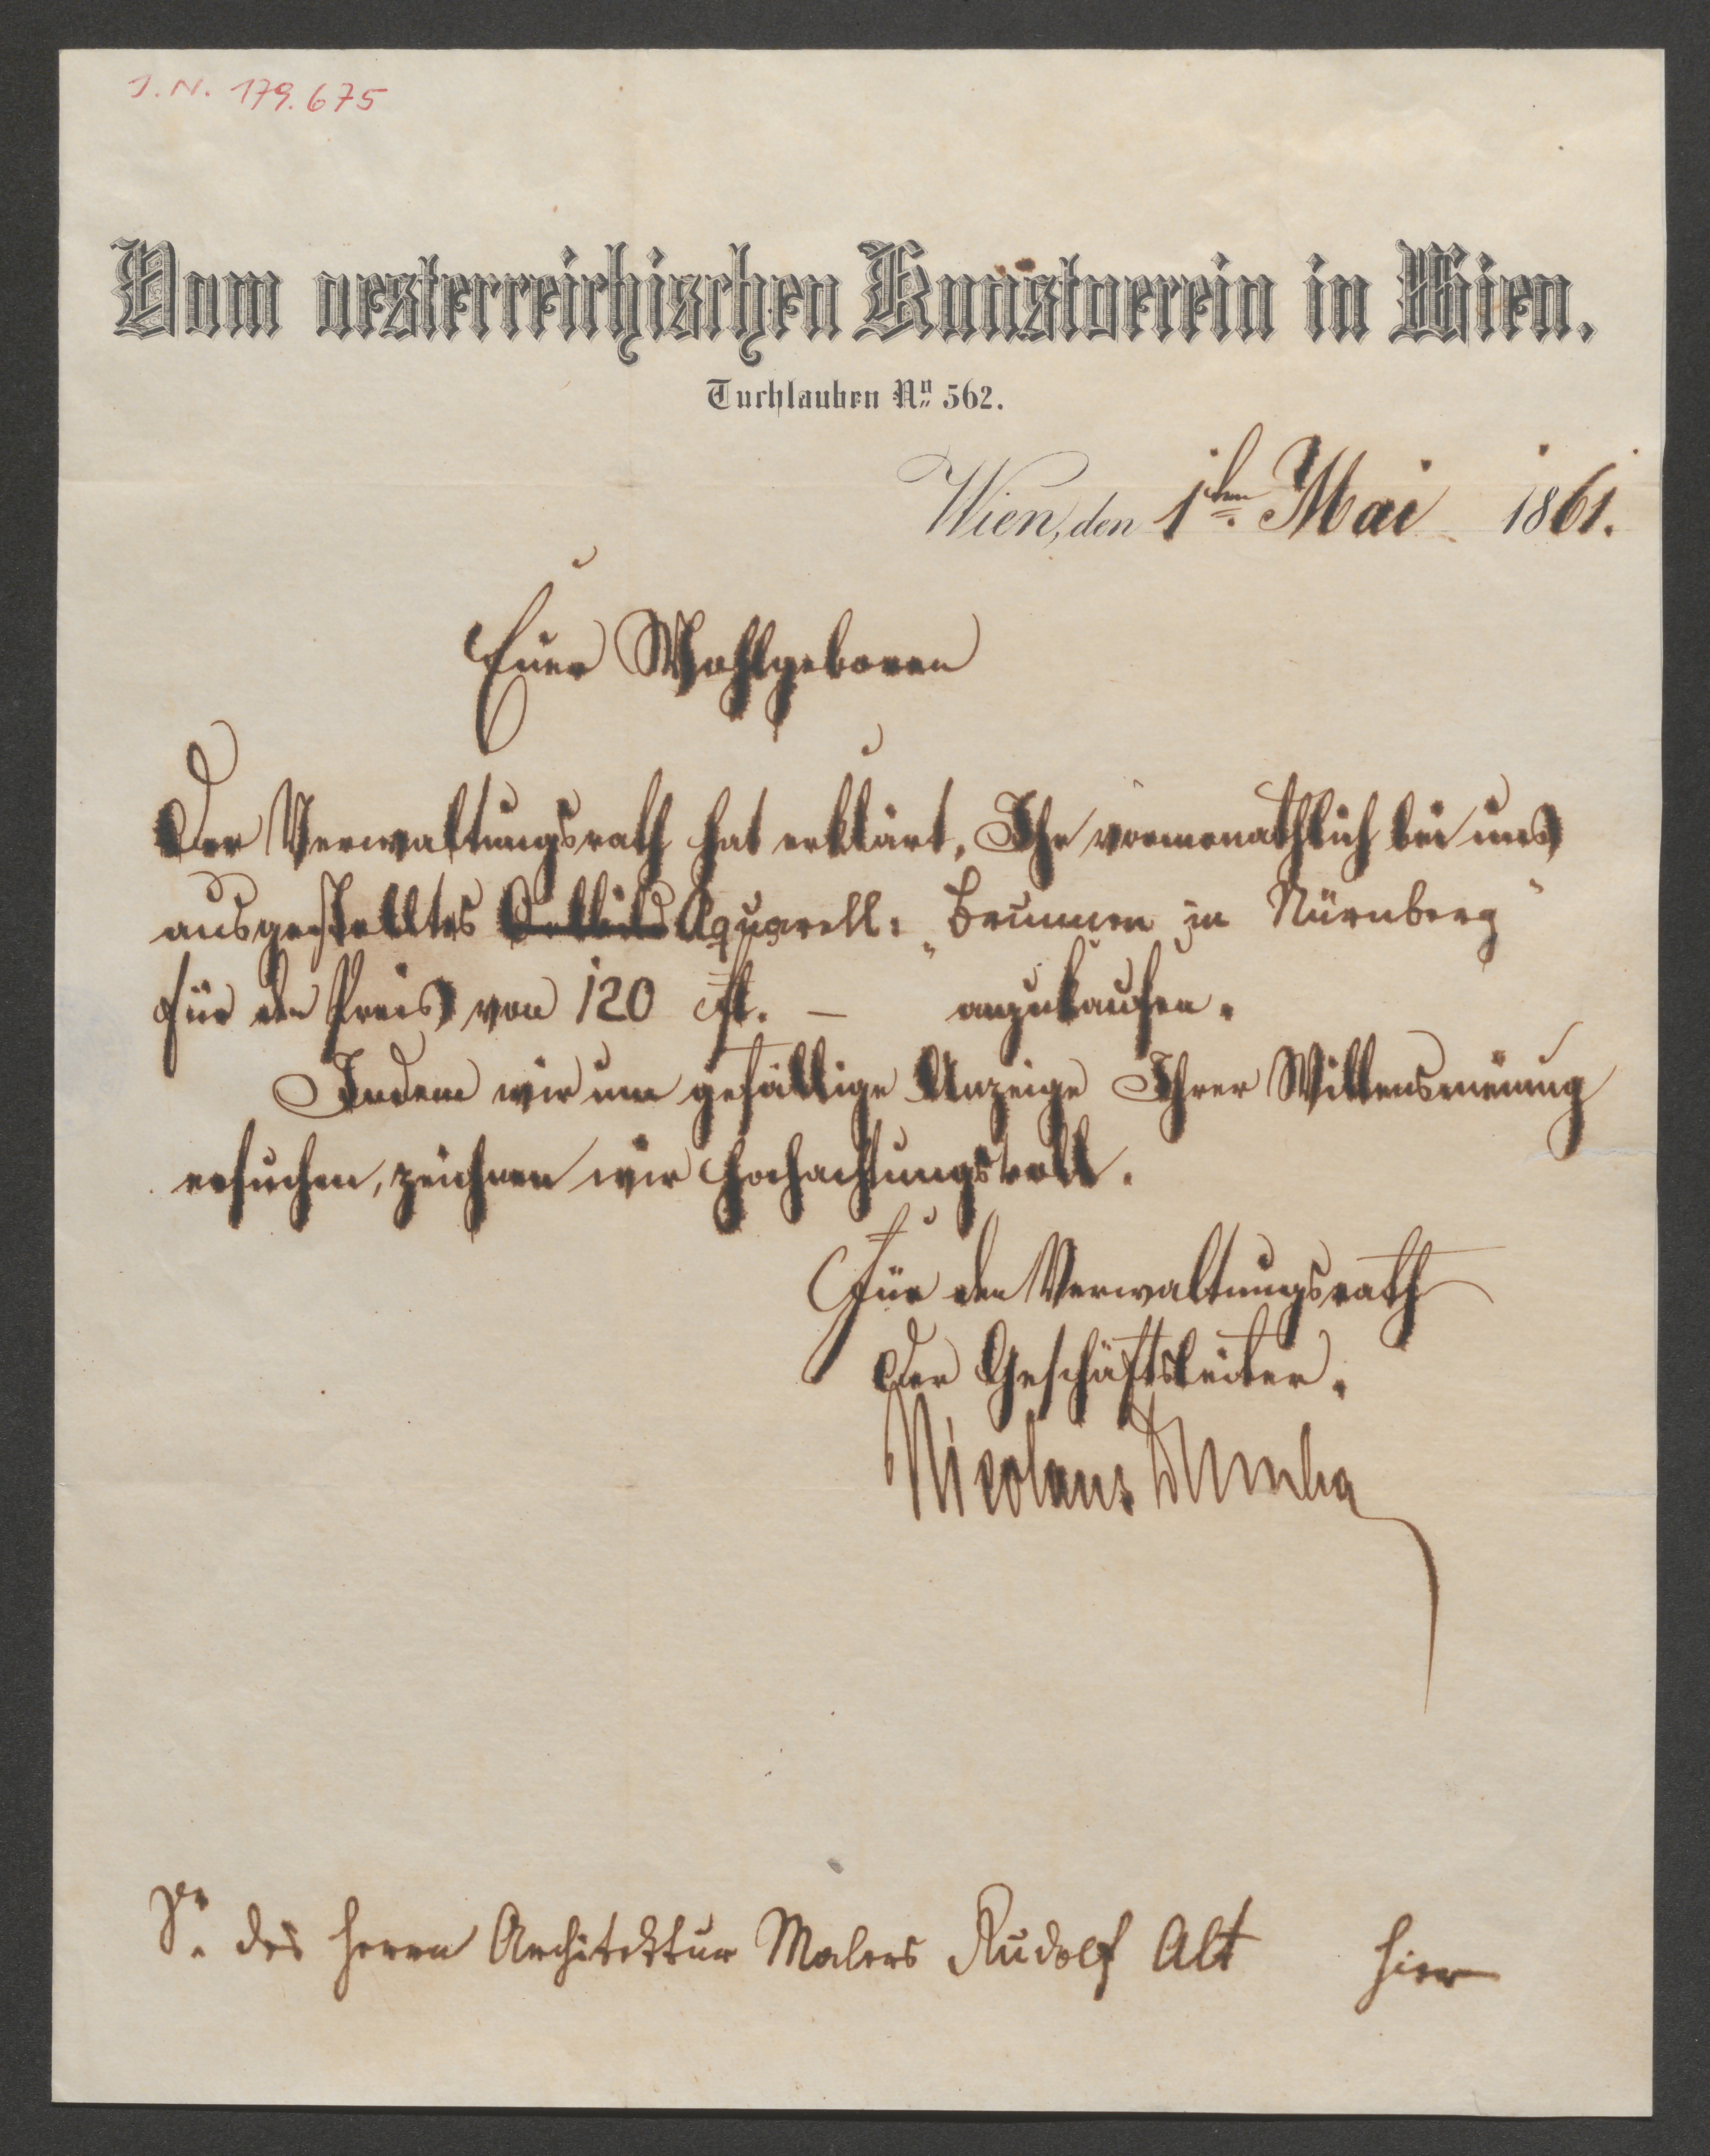 J. N. 179.675
Vom oesterreichischen Kunstverein in Wien.
Tuchlauben No. 562.
Wien, den 1ten Mai 1861.
Euer Wohlgeboren
Der Verwaltungsrath hat erklärt, Ihr vormonathlich bei uns
ausgestelltes Oelbild Aquarell: „Brunnen in Nürnberg"
für den Preis von 120 fl. — anzukaufen.
Indem wir um gefällige Anzeige Ihrer Willensmeinung
ersuchen, zeichnen wir hochachtungsvoll.
Für den Verwaltungsrath
Der Geschäftsleiter.
Nicolaus Dumba
Sr. des Herrn Architektur Malers Rudolf Alt hier